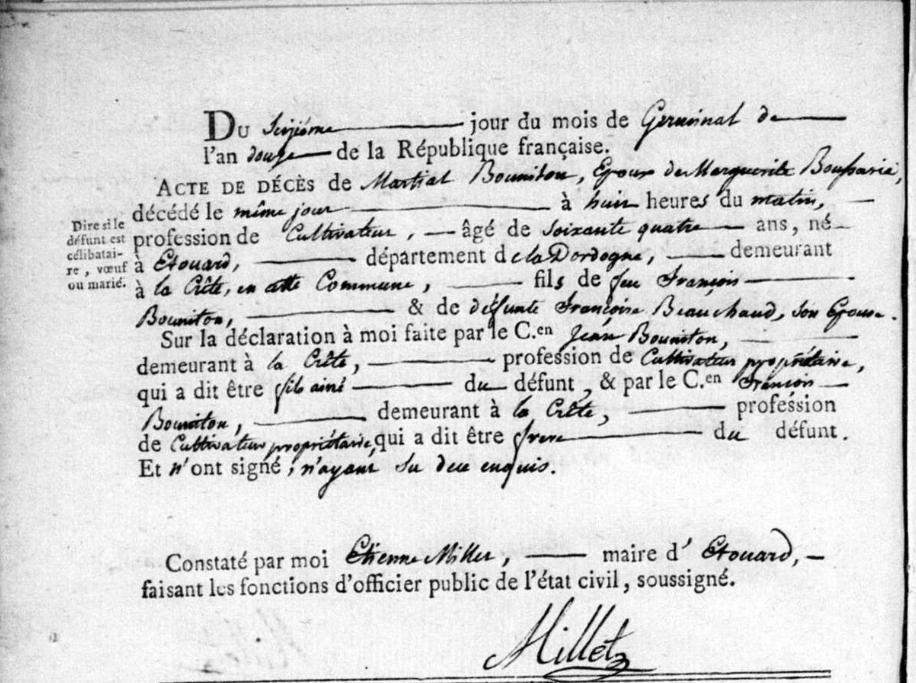 Du Seizième jour du mois de Germinal de
l'an douze de la République française.
Acte de décès de Martial Bouniton, Epoux de Marguerite Boussarie,
décédé le même jour à huit heures du matin,
profession de Cultivateur, âgé de soixante quatre ans, né
à Etouard, département de la Dordogne, demeurant
à la Crête, en cette Commune, fils de feu François
Bouniton, & de défunte Françoise Beauchaud, son Epouse.
Dire si le
défunt est
célibatai-
re, vœuf
ou marié.
Sur la déclaration à moi faite par le C.en Jean Bouniton,
demeurant à la Crête, profession de Cultivateur propriétaire,
qui a dit être fils ainé du défunt, & par le C.en François
Bouniton, demeurant à la Crête, profession
de Cultivateur propriétaire, qui a dit être frere du défunt.
Et n'ont signé, n'ayant su de ce enquis.
Constaté par moi Etienne Millet, maire d'Etouard,
faisant les fonctions d'officier public de l'état civil, soussigné.
Millet